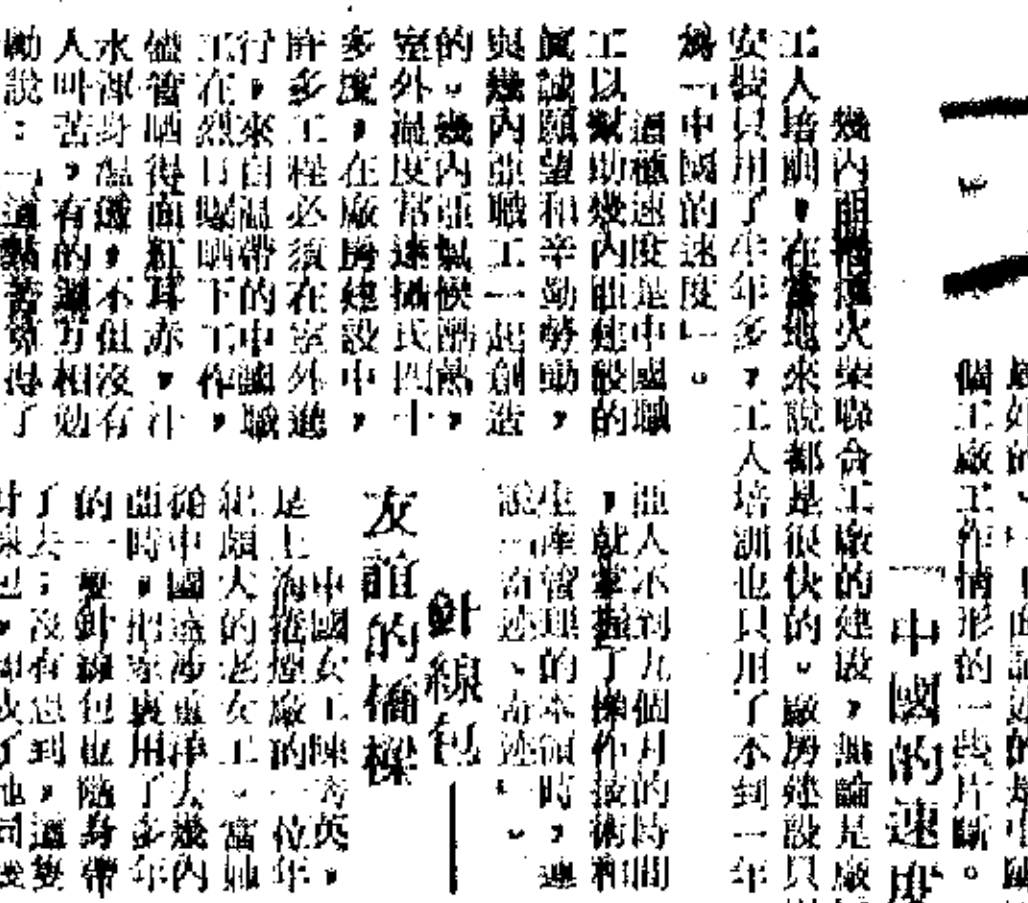 個工廠工作情形的一些片斷。
「中國的速度
幾內亞捲煙火柴聯合工廠的建設,無論是廠
工人培訓,在當地來說都是很快的。廠房建設只
安裝只用了半年多,工人培訓也只用了不到一年
爲「中國的速度」。
這種速度是中國職
工以幫助幾內亞建設的
眞誠願望和辛勤勞動,
與幾內亞職工一起創造
的。幾內亞氣候酷熱,
室外溫度常達攝氏四十
多度,在廠房建設中,
許多工程必須在室外進
行,來自溫帶的中國職
工在烈日曝晒下工作,
儘管晒得面紅耳赤,汗
水渾身濕透,不但沒有
人叫苦,有的還互相勉
勵說:「這點苦算得了
亞人不到九個月的時間
,就掌握了操作技術和
生產管理的本領時,連
說「奇迹、奇迹」。
針線包——
友誼的橋樑
中國女工陳秀英,
是上海捲煙廠的一位年
紀頗大的老女工。當她
從中國遠涉重洋去幾內
亞時,把家裏用了多年
的一隻針線包也隨身帶
了去;沒有想到,這隻